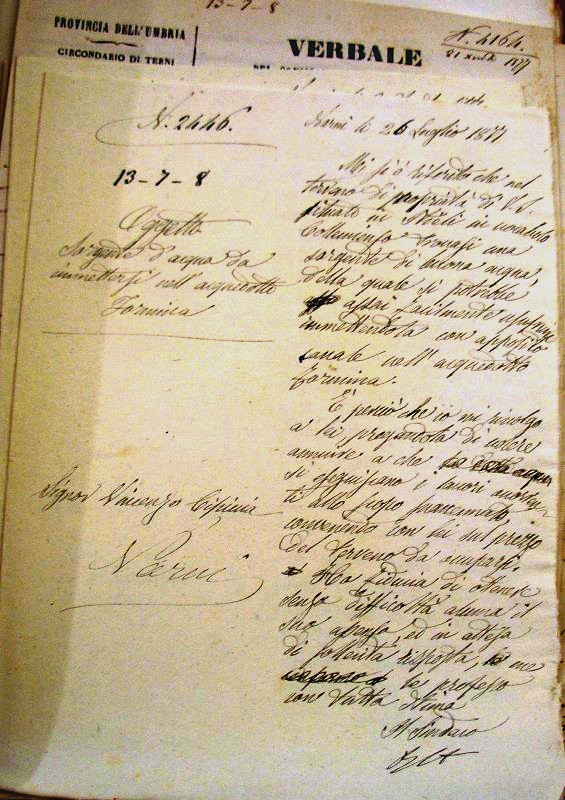 13-7-8
PROVINCIA DELL'UMBRIA
CIRCONDARIO DI TERNI
VERBALE
N. 4164.
1877
N. 2446.
13-7-8
Oggetto
Sorgente d'acqua da
immettersi nell'acquedotto
Formina
Signor Vincenzo
Narni
Narni li 26 Luglio 1877
Mi si è riferito che nel
terreno di proprietà di V. S.
situato in Stòli in vocabolo
trovasi una
sorgente di buona acqua,
della quale si potrebbe
assai facilmente usufruire
immettendola con apposito
canale nell'acquedotto
Formina.
È perciò che io mi rivolgo
a lei pregandola di volere
annuire a che la detta acqua
si eseguissero i lavori
allo scopo
convenendo con lei sul prezzo
del terreno da occuparsi.
Ho fiducia di ottenere
senza difficoltà alcuna il
suo assenso, ed in attesa
di sollecita risposta, me
le professo
con tutta stima
Il Sindaco